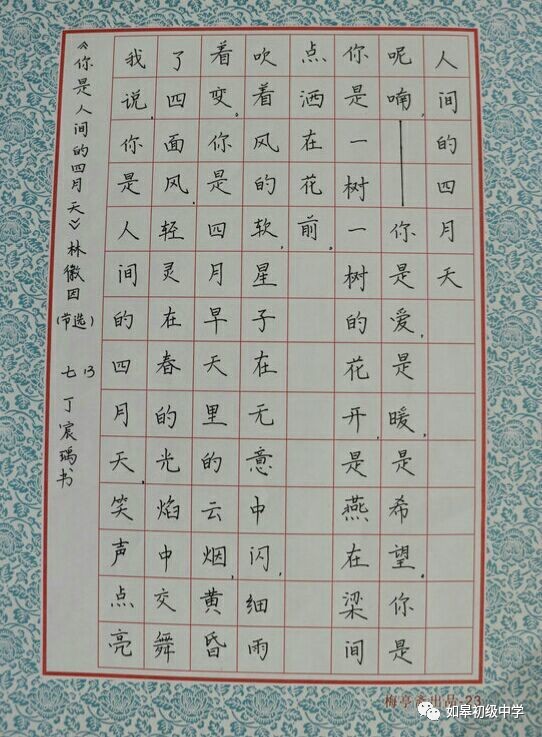 《你是人间的四月天》林徽因(节选) 七13 丁宸瑀书
我说，你是人间的四月天，笑声点亮
了四面风，轻灵在春的光焰中交舞
着变。你是四月早天里的云烟，黄昏
吹着风的软，星子在无意中闪，细雨
点洒在花前。
你是一树一树的花开，是燕在梁间
呢喃，——你是爱，是暖，是希望，你是
人间的四月天
出品 23
如皋初级中学